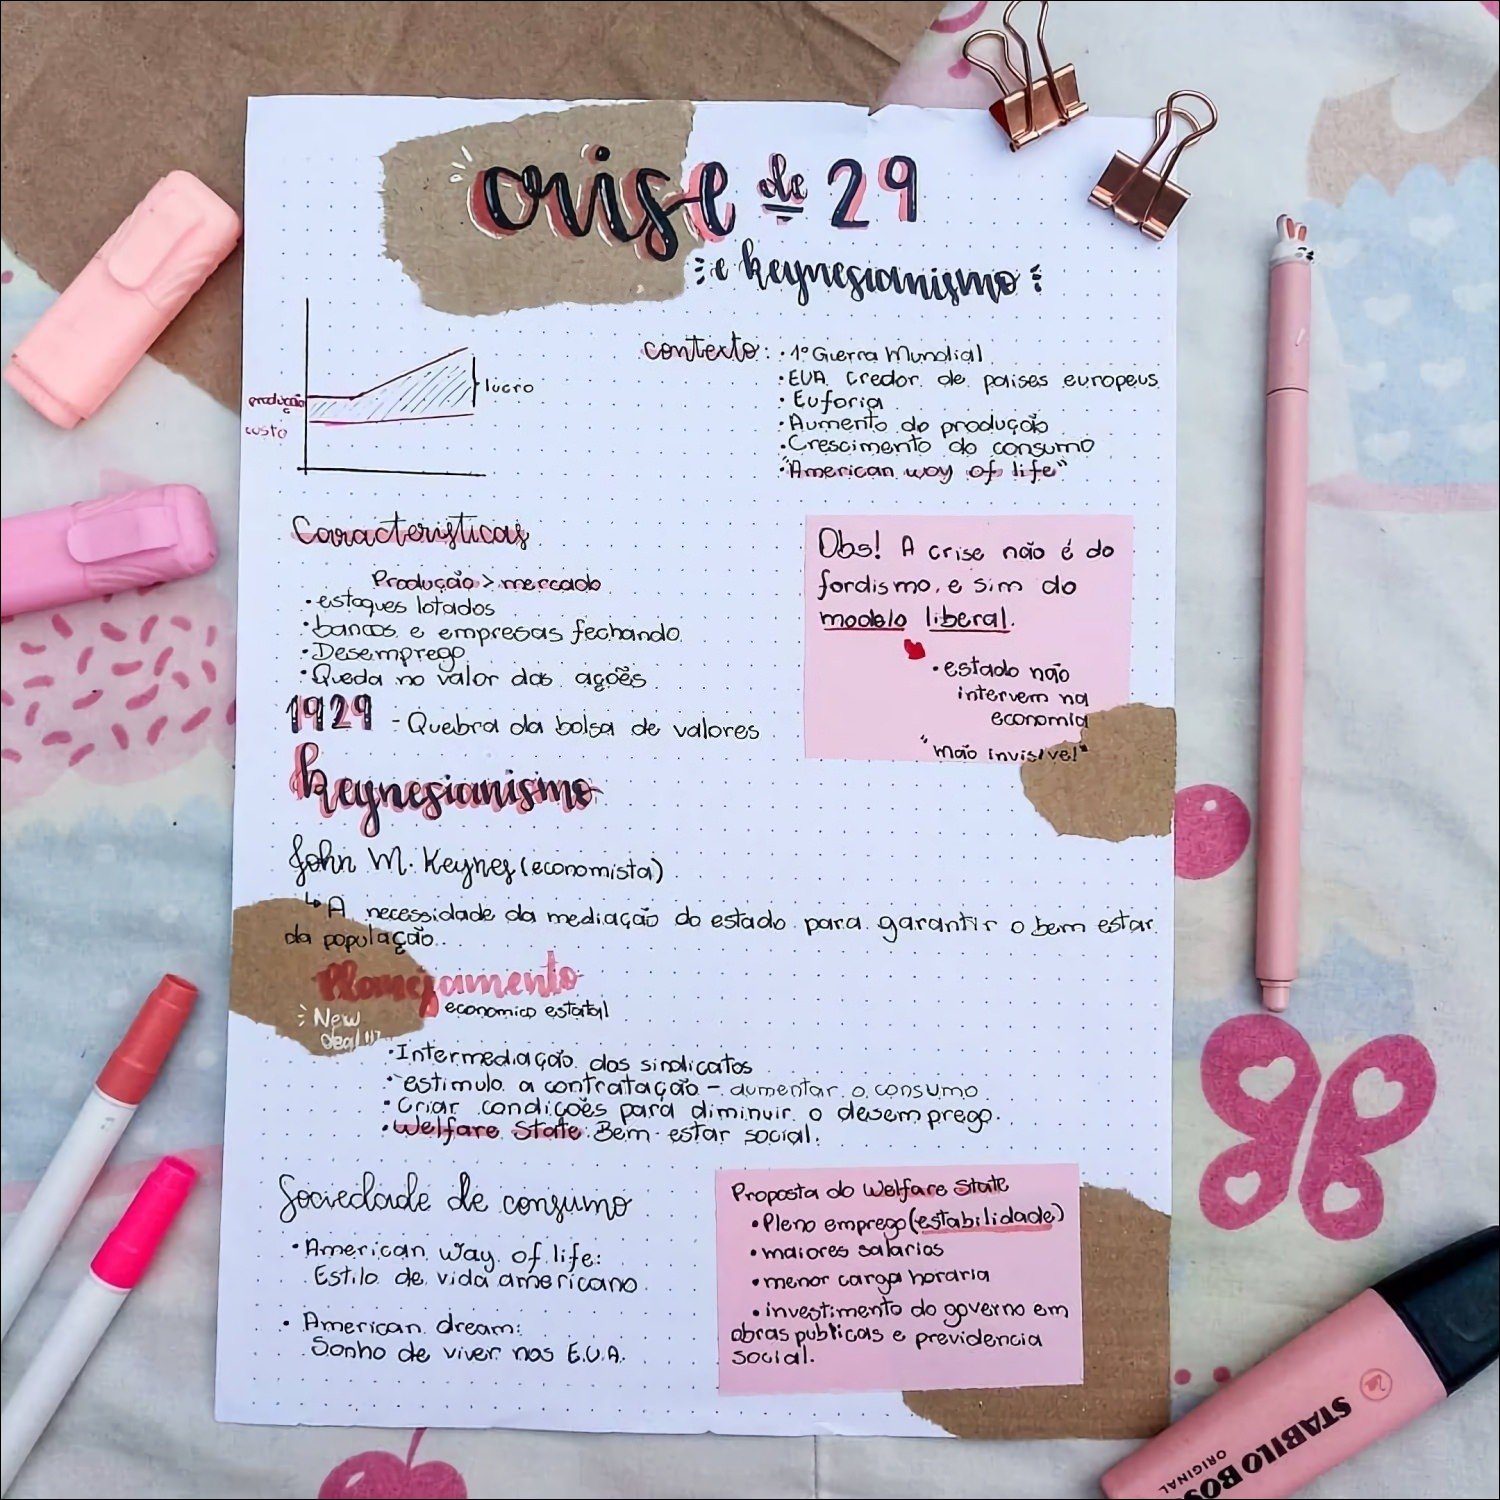 crise de 29
e keynesianismo
produção
custo
lucro
contexto: • 1º Guerra Mundial
• EUA credor de países europeus
• Euforia
• Aumento da produção
• Crescimento do consumo
• "American way of life"
Características
Produção > mercado
• estoques lotados
• bancos e empresas fechando
• Desemprego
• Queda no valor das ações
1929 - Quebra da bolsa de valores
Obs! A crise não é do
fordismo, e sim do
modelo liberal.
• estado não
intervem na
economia
"mão invisível"
keynesianismo
John M. Keynes (economista)
↳ A necessidade da mediação do estado para garantir o bem estar
da população.
Planejamento
economico estatal
New
deal!!!
• Intermediação dos sindicatos
• estimulo a contratação - aumentar o consumo
• Criar condições para diminuir o desemprego.
• Welfare State: Bem estar social.
Sociedade de consumo
• American way of life:
Estilo de vida americano
• American dream:
Sonho de viver nos E.U.A.
Proposta do Welfare State
• Pleno emprego (estabilidade)
• maiores salarios
• menor carga horaria
• investimento do governo em
obras publicas e previdencia
social.
STABILO BOSS
ORIGINAL